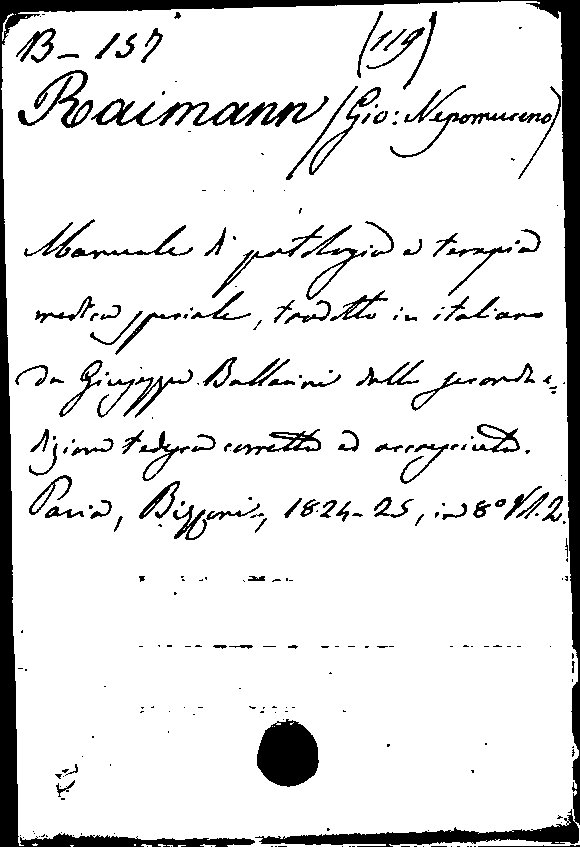 B - 157 (119)
Raimann (Gio: Nepomuceno)
Manuale di patologia e terapia
medica speciale, tradotto in italiano
da Giuseppe Ballarini dalla seconda e-
dizione tedesca corretta ed accresciuta.
Pavia, Bizzoni, 1824-25, in 8° Vl. 2.